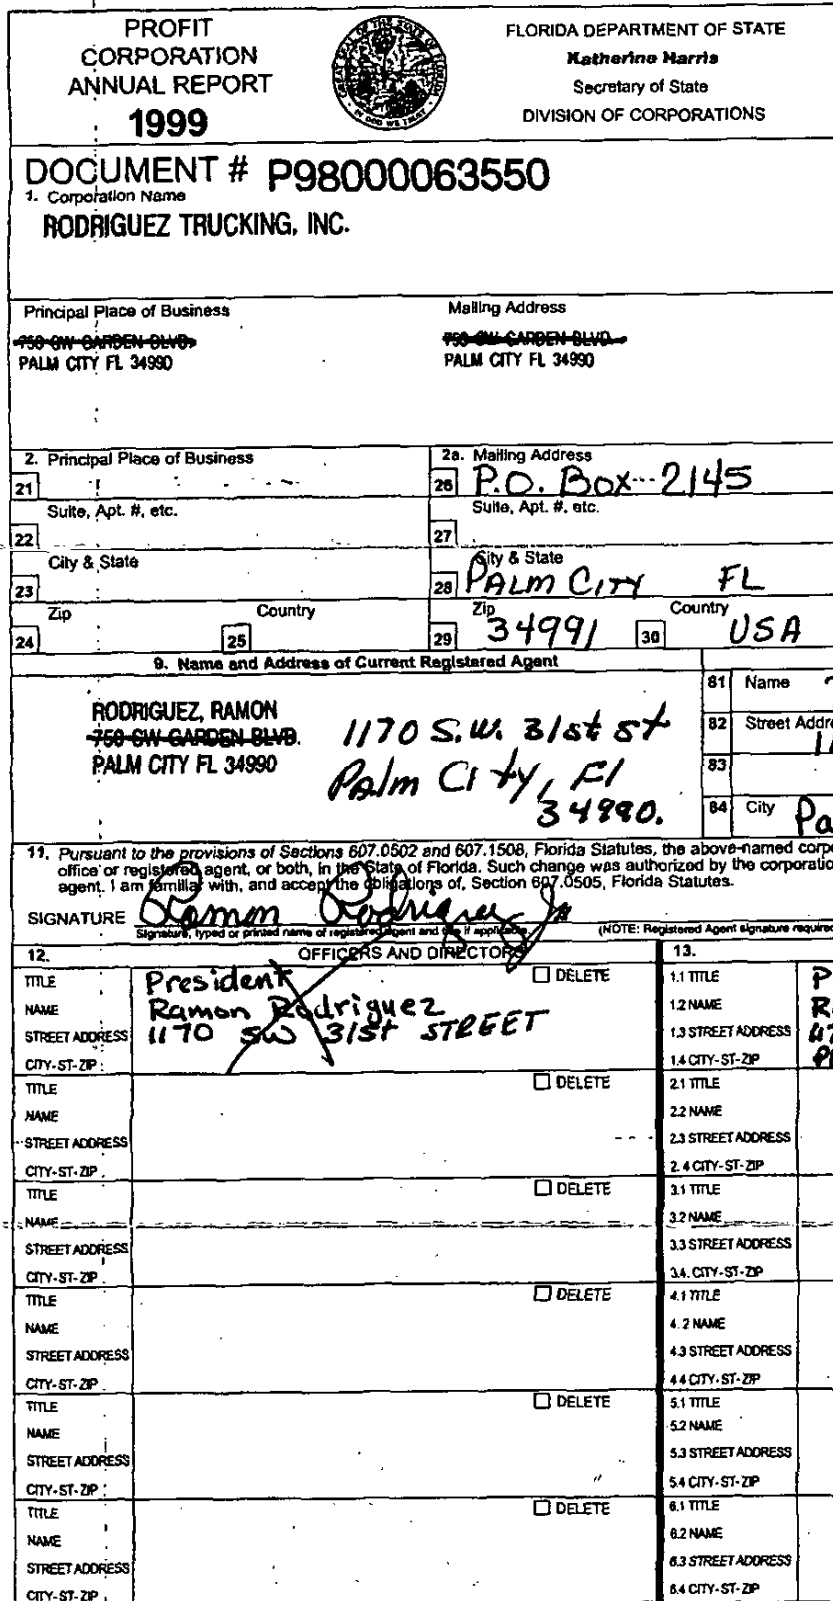 PROFIT
CORPORATION
ANNUAL REPORT
1999
FLORIDA DEPARTMENT OF STATE
Katherine Harris
Secretary of State
DIVISION OF CORPORATIONS
DOCUMENT # P98000063550
1. Corporation Name
RODRIGUEZ TRUCKING, INC.
Principal Place of Business
Mailing Address
750 SW GARDEN BLVD.
750 SW GARDEN BLVD.
PALM CITY FL 34990
PALM CITY FL 34990
2. Principal Place of Business
2a. Mailing Address
21
26 P.O. Box 2145
Suite, Apt. #, etc.
Suite, Apt. #, etc.
22
27
City & State
City & State
23
28 PALM CITY FL
Zip
Country
Zip
Country
24
25
29 34991
30 USA
9. Name and Address of Current Registered Agent
81 Name
RODRIGUEZ, RAMON
750 SW GARDEN BLVD.
PALM CITY FL 34990
1170 S.W. 31st st
Palm City, Fl
34990.
82 Street Addre
83
84 City Pa
11. Pursuant to the provisions of Sections 607.0502 and 607.1508, Florida Statutes, the above-named corpo
office or registered agent, or both, in the State of Florida. Such change was authorized by the corporatio
agent. I am familiar with, and accept the obligations of, Section 607.0505, Florida Statutes.
SIGNATURE Ramon Rodriguez Jr
Signature, typed or printed name of registered agent and title if applicable.
(NOTE: Registered Agent signature required
12. OFFICERS AND DIRECTORS
13.
TITLE President DELETE
NAME Ramon Rodriguez
STREET ADDRESS 1170 SW 31st STREET
CITY-ST-ZIP
1.1 TITLE P
1.2 NAME R
1.3 STREET ADDRESS
1.4 CITY-ST-ZIP
TITLE DELETE
NAME
STREET ADDRESS
CITY-ST-ZIP
2.1 TITLE
2.2 NAME
2.3 STREET ADDRESS
2.4 CITY-ST-ZIP
TITLE DELETE
NAME
STREET ADDRESS
CITY-ST-ZIP
3.1 TITLE
3.2 NAME
3.3 STREET ADDRESS
3.4. CITY-ST-ZIP
TITLE DELETE
NAME
STREET ADDRESS
CITY-ST-ZIP
4.1 TITLE
4.2 NAME
4.3 STREET ADDRESS
4.4 CITY-ST-ZIP
TITLE DELETE
NAME
STREET ADDRESS
CITY-ST-ZIP
5.1 TITLE
5.2 NAME
5.3 STREET ADDRESS
5.4 CITY-ST-ZIP
TITLE DELETE
NAME
STREET ADDRESS
CITY-ST-ZIP
6.1 TITLE
6.2 NAME
6.3 STREET ADDRESS
6.4 CITY-ST-ZIP